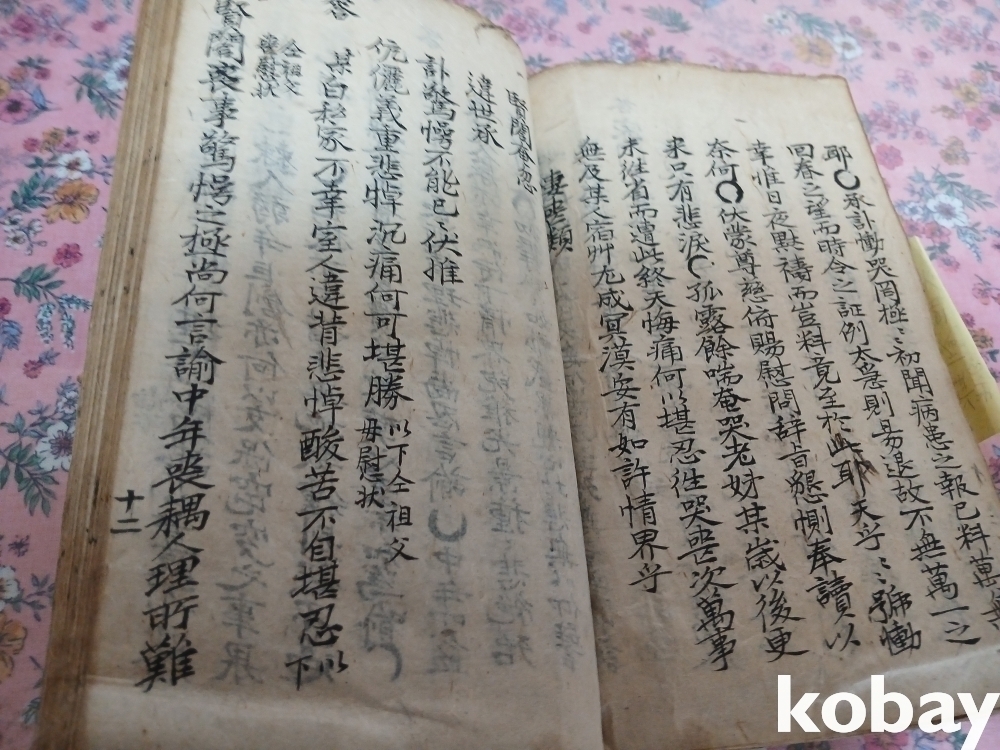 承訃慟哭罔極〻初聞病患之報已料萬
耶 回春之望而時令之証例太急則易退故不無萬一之
幸惟日夜默禱而豈料竟至於此耶天乎〻號慟
奈何 伏蒙尊慈俯賜慰問辞旨懇惻奉讀以
來只有悲淚 孤露餘喘奄哭老姊某歲以後更
未往省而遭此終天悔痛何以堪忍徃哭喪次萬事
無及某人宿艸尤成冥漠安有如許情界乎
妻喪類
賢閤奄忽
違世承
訃驚愕不能已〻伏惟
伉儷義重悲悼沉痛何可堪勝 以下仝祖父
母慰狀
某白私家不幸室人違背悲悼酸苦不自堪忍 以下
仝祖父
母慰狀
答
賢閤喪事驚愕之極尚何言諭中年喪耦人理所難
十二
kobay